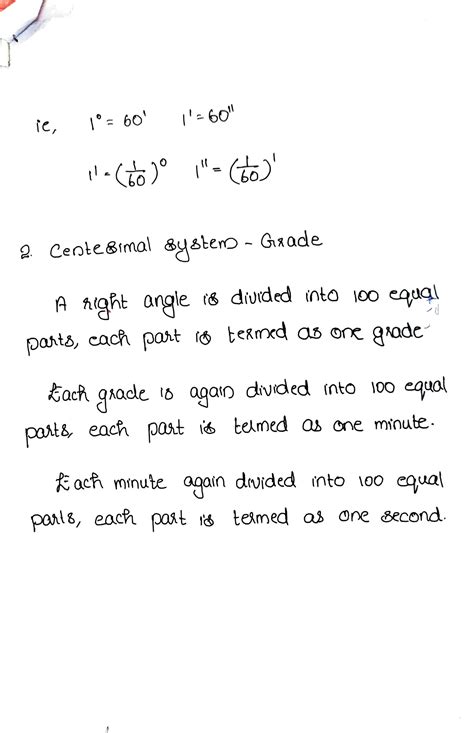 ie, 1° = 60' 1' = 60"
1' = (1/60)° 1" = (1/60)'
2. Centesimal system - Grade
A right angle is divided into 100 equal
parts, each part is termed as one grade
Each grade is again divided into 100 equal
parts each part is termed as one minute.
Each minute again divided into 100 equal
parts, each part is termed as one second.